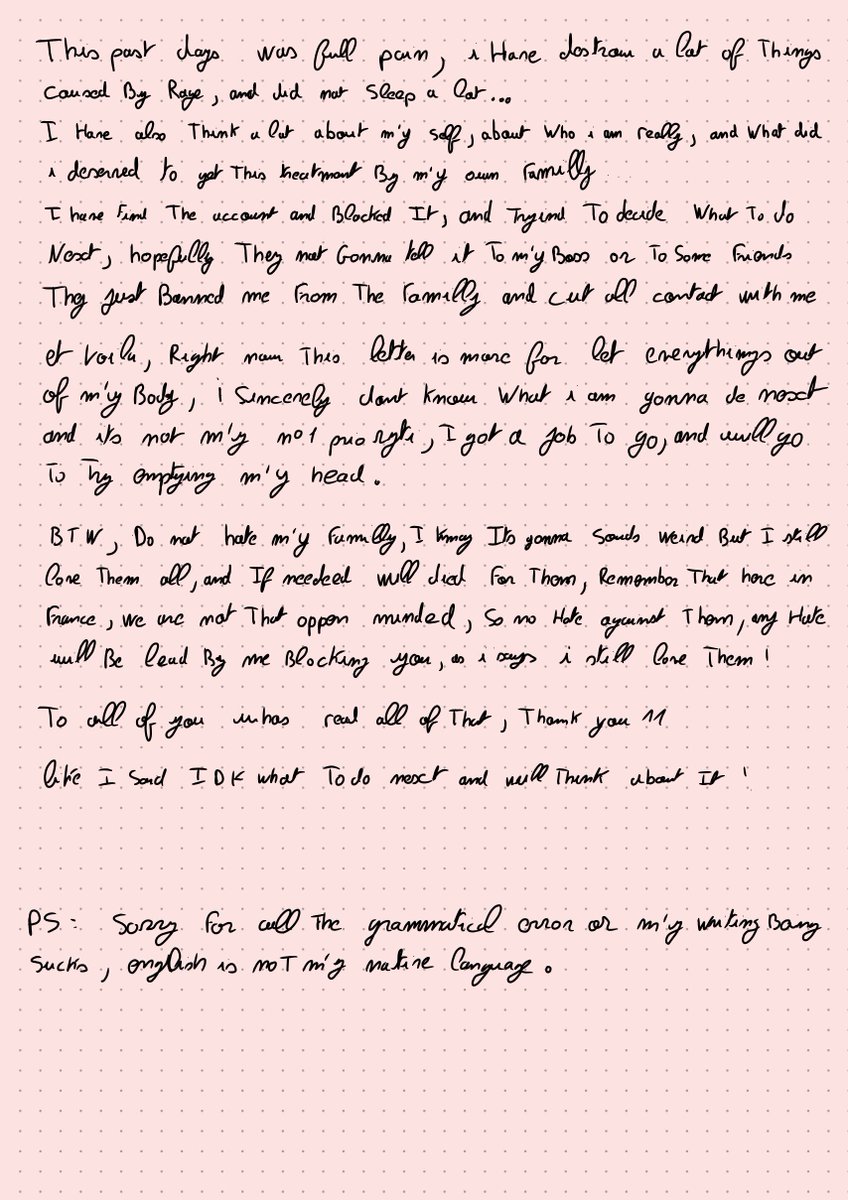 This past days was full pain, i Have destroy a lot of Things
caused By Rage, and did not Sleep a lot...
I Have also Think a lot about m'y self, about Who i am really, and What did
i deserved to get This treatment By m'y own Familly
I have Find The account and Blocked It, and Trying To decide What To do
Next, hopefully They not Gonna tell it To m'y Boss or To Some Friends
They Just Banned me From The Familly and cut all contact with me
et voila, Right now This letter is more for let everythings out
of m'y Body, i Sincerely dont know What i am gonna do next
and its not m'y no1 priority, I got a Job To go, and will go
To Try emptying m'y head.
BTW, Do not hate m'y Familly, I know Its gonna Sounds weird But I still
love Them all, and If needeed will died For Them, Remember That here in
France, we are not That oppen minded, So no Hate against Them, any Hate
will Be lead By me Blocking you, as i says i still love Them !
To all of you whos read all of That, Thank you !!
like I Said IDK what To do next and will Think about It !
PS: Sorry for all The grammatical error or m'y writing Being
sucks, english is noT m'y native language.